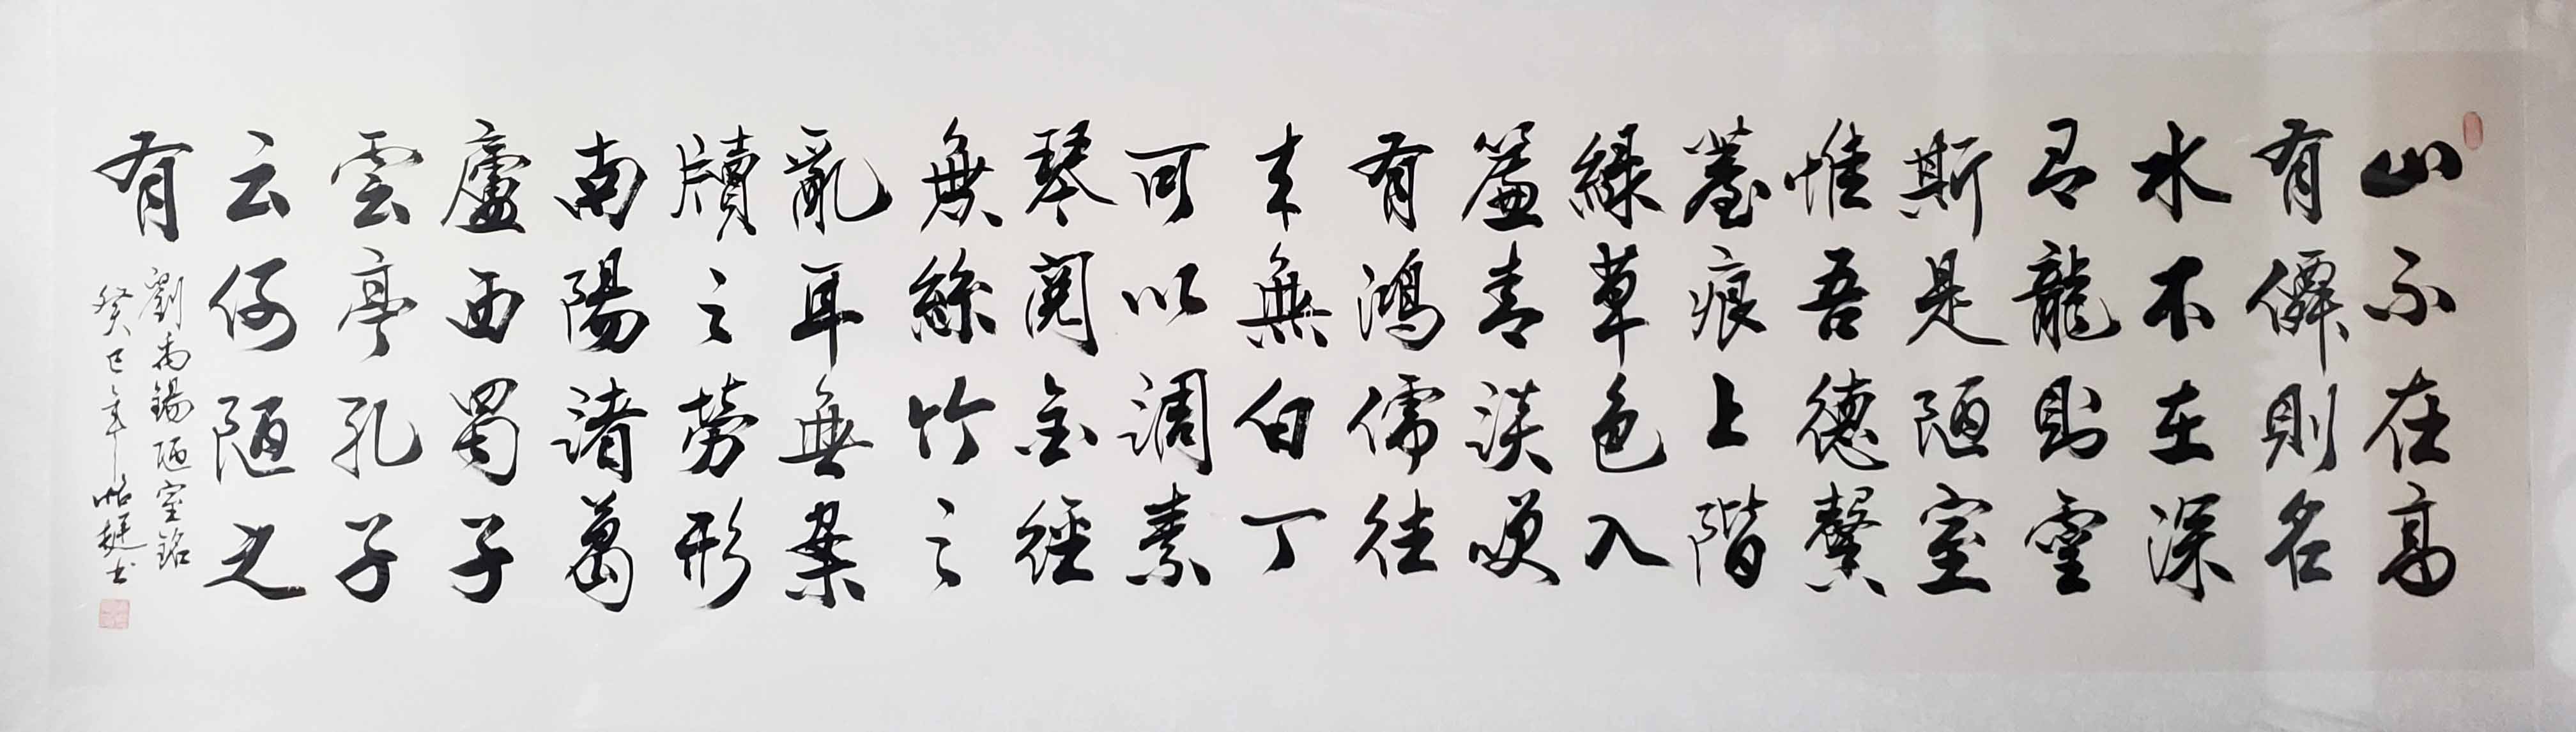 山不在高
有僊則名
水不在深
有龍則靈
斯是陋室
惟吾德馨
薹痕上階
綠草色入
簾青談笑
有鴻儒往
来無白丁
可以調素
琴閱金經
無絲竹之
亂耳無案
牘之勞形
南陽諸葛
廬西蜀子
雲亭孔子
云何陋之
有
劉禹錫陋室銘
癸巳年 书